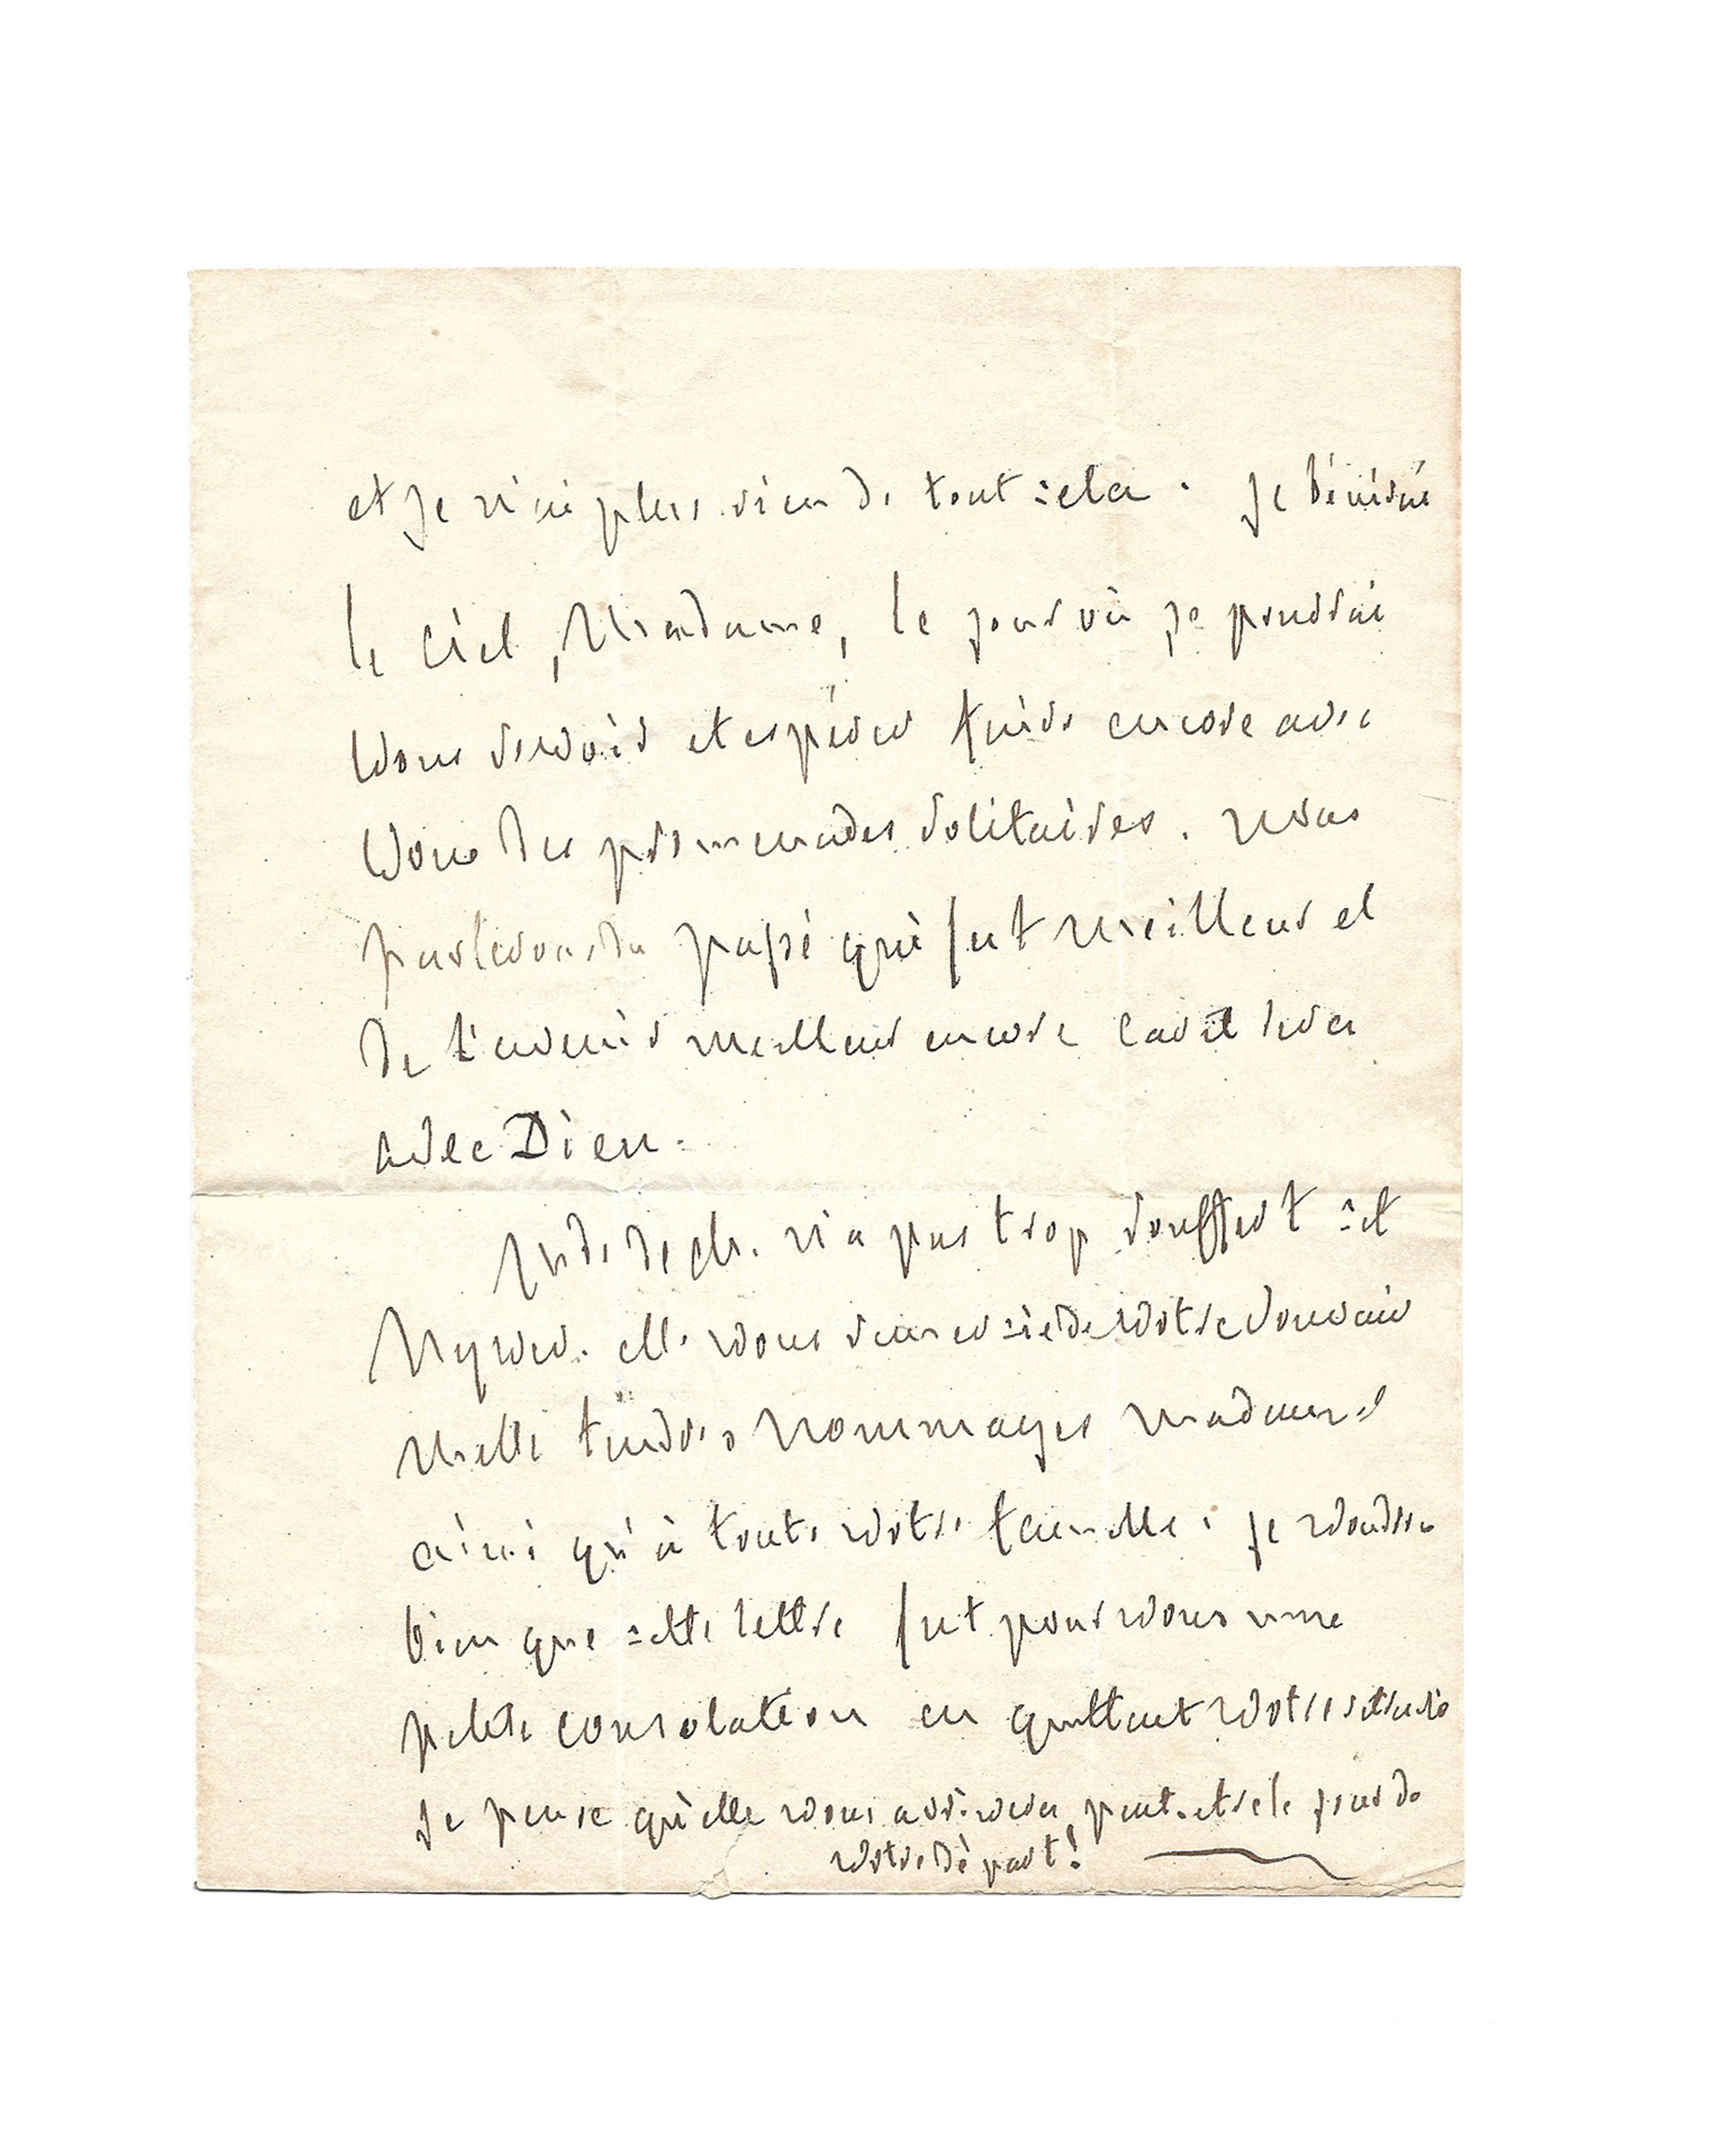 et je n'ai plus rien de tout cela. je bénirai
le Ciel, Madame, le jour où je pourrai
vous revoir et espérer faire encore avec
vous des promenades solitaires. nous
parlerons du passé qui fut meilleur et
de l'avenir meilleur encore car il sera
avec Dieu.
Mde. de Ch. n'a pas trop souffert cet
hyver. elle vous remercie de votre souvenir
mille tendres hommages madame
ainsi qu'à toute votre famille. je voudrais
bien que cette lettre fut pour vous une
petite consolation en quittant votre
je pense qu'elle vous arrivera peut-etre le jour de
votre départ!